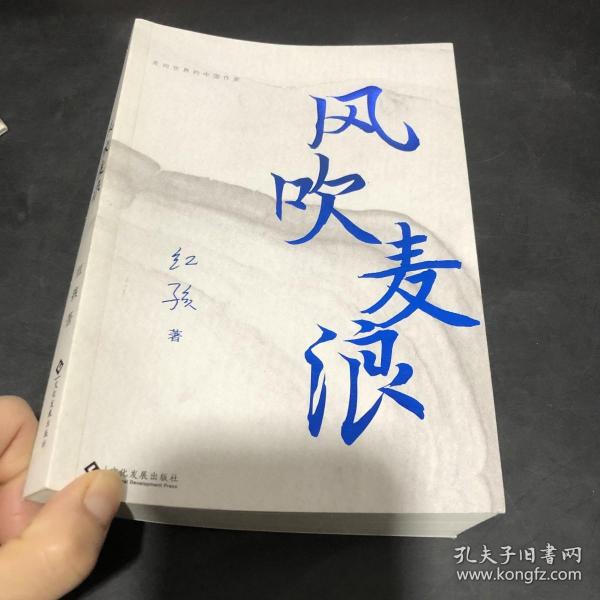 走向世界的中国作家
风
吹
麦
浪
红
孩
著
文化发展出版社
Cultural Development Press
孔夫子旧书网
www.kongfz.com